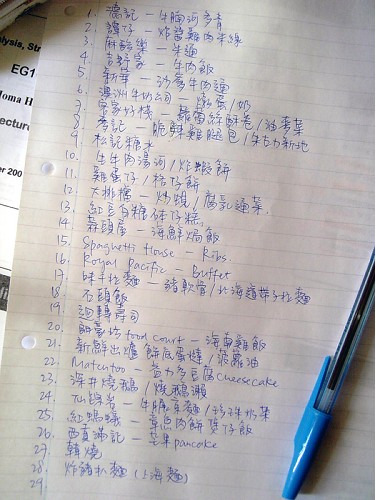 alysis, Str
EG1
Homa H
ecture
er 200
1. 潭記 – 牛腩河多青
2. 譚仔 – 炸醬雞肉米線
3. 麻酸樂 – 米通
4. 吉野家 – 牛肉飯
5. 新華 – 沙爹牛肉通
6. 澳洲牛奶公司 – 燉蛋/奶
7. 客家好棧
8. 脆辣雞腿包/朱古力新地
9. 松記糖水
10. 生牛肉湯河/炸蝦餅
11. 雞蛋仔/格仔餅
12. 大排檔 – 炒蜆/腐乳通菜.
13. 紅豆白糖砵仔糕.
14. 蒜頭屋 – 海鮮焗飯
15. Spaghetti House – Ribs.
16. Royal Pacific – Buffet
17. 味千拉麵 – 豬軟骨/北海道帶子拉麵
18. 石頭飯
19. 迴轉壽司
20. food court – 海南雞飯
21. 新鮮出爐餅底蛋撻/菠蘿油
22. Matchtoo – 豆腐cheesecake
23. 深井燒鵝/燒鵝瀨
24. 牛腩/珍珠奶茶
25. 紅螞蟻 – 章魚肉餅煲仔飯
26. 西貢滿記 – 芒果pancake
27. 韓燒
28. 炸豬扒麵 (上海麵)
29.